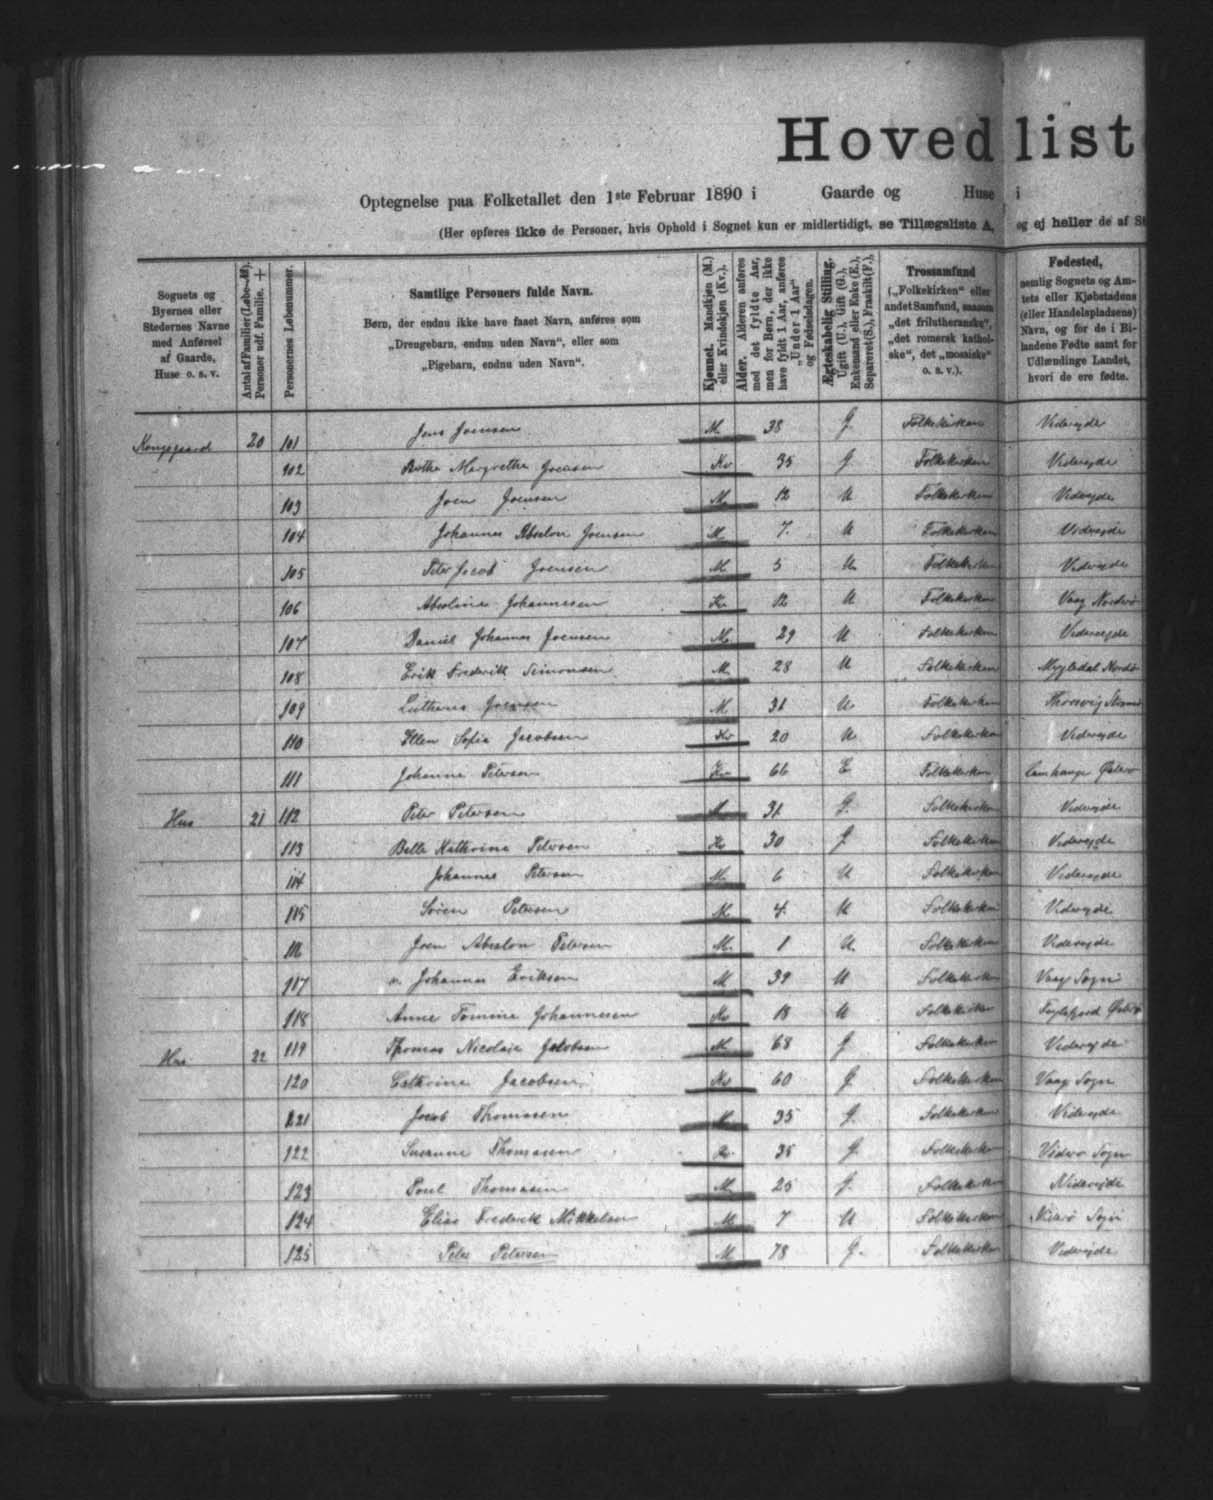 Hovedlist
Optegnelse paa Folketallet den 1ste Februar 1890 i Gaarde og Huse i
(Her opføres ikke de Personer, hvis Ophold i Sognet kun er midlertidigt, se Tillægsliste A, og ej heller de af St
Sognets og Byernes eller Stedernes Navne med Anførsel af Gaarde, Huse o. s. v.
Antal af Familier (Løbe-№). Personer udf. Familie. +
Personernes Løbenummer.
Samtlige Personers fulde Navn.
Børn, der endnu ikke have faaet Navn, anføres som „Drengebarn, endnu uden Navn“, eller som „Pigebarn, endnu uden Navn“.
Kjønnet. Mandkjøn (M.) eller Kvindekjøn (Kv.).
Alder. Alderen anføres med det fyldte Aar, men for Børn, der ikke have fyldt 1 Aar, anføres „Under 1 Aar“ og Fødselsdagen.
Ægteskabelig Stilling. Ugift (U.), Gift (G.), Enkemand eller Enke (E.), Separeret (S.), Fraskilt (F.).
Trossamfund („Folkekirken“ eller andet Samfund, saasom „det frilutheranske“, „det romersk katholske“, det „mosaiske“ o. s. v.).
Fødested, nemlig Sognets og Amtets eller Kjøbstadens (eller Handelspladsens) Navn, og for de i Bilandene Fødte samt for Udlændinge Landet, hvori de ere fødte.
Kongsgaard 20 101 Jens Joensen M. 38 G. Folkekirken Videreide
102 Margrethe Joensen Kv 35 G. Folkekirken Videreide
103 Joen Joensen M. 12 U Folkekirken Videreide
104 Johannes Absalon Joensen M 7. U Folkekirken Videreide
105 Peter Jacob Joensen M 5 U. Folkekirken Videreide
106 Absoline Johannesen Kv 12 U Folkekirken Vaag Nordrø
107 Daniel Johannes Joensen M. 29 U Folkekirken Videreide
108 Erik Frederik Simonsen M. 28 U Folkekirken Mygledal Nordø
109 Joensen M. 31 U. Folkekirken Thorsvig Strømø
110 Ellen Sofia Jacobsen Kv 20 U. Folkekirken Videreide
111 Johanne Petersen Kv. 66 E Folkekirken Østerø
Hus 21 112 Peter Petersen M. 31. G. Folkekirken Videreide
113 Kathrine Petersen Kv 30 G. Folkekirken Videreide
114 Johannes Petersen M. 6 U Folkekirken Videreide
115 Sören Petersen M. 4. U Folkekirken Videreide
116 Joen Absalon Petersen M. 1 U. Folkekirken Videreide
117 Johannes Eriksen M 39 U Folkekirken Vaag Sogn
118 Anne Tomine Johannesen Kv. 18 U Folkekirken Fuglefjord Østerø
Hus 22 119 Thomas Nicolaie Jacobsen M. 68 G Folkekirken Videreide
120 Cathrine Jacobsen Kv 60 G. Folkekirken Vaag Sogn
121 Jacob Thomasen M. 35 G. Folkekirken Videreide
122 Susanne Thomasen Kv. 35 G. Folkekirken Viderø Sogn
123 Poul Thomasen M. 25 G. Folkekirken Videreide
124 Elias Frederik Mikkelsen M. 7 U Folkekirken Viderø Sogn
125 Peter Petersen M. 78 G. Folkekirken Videreide